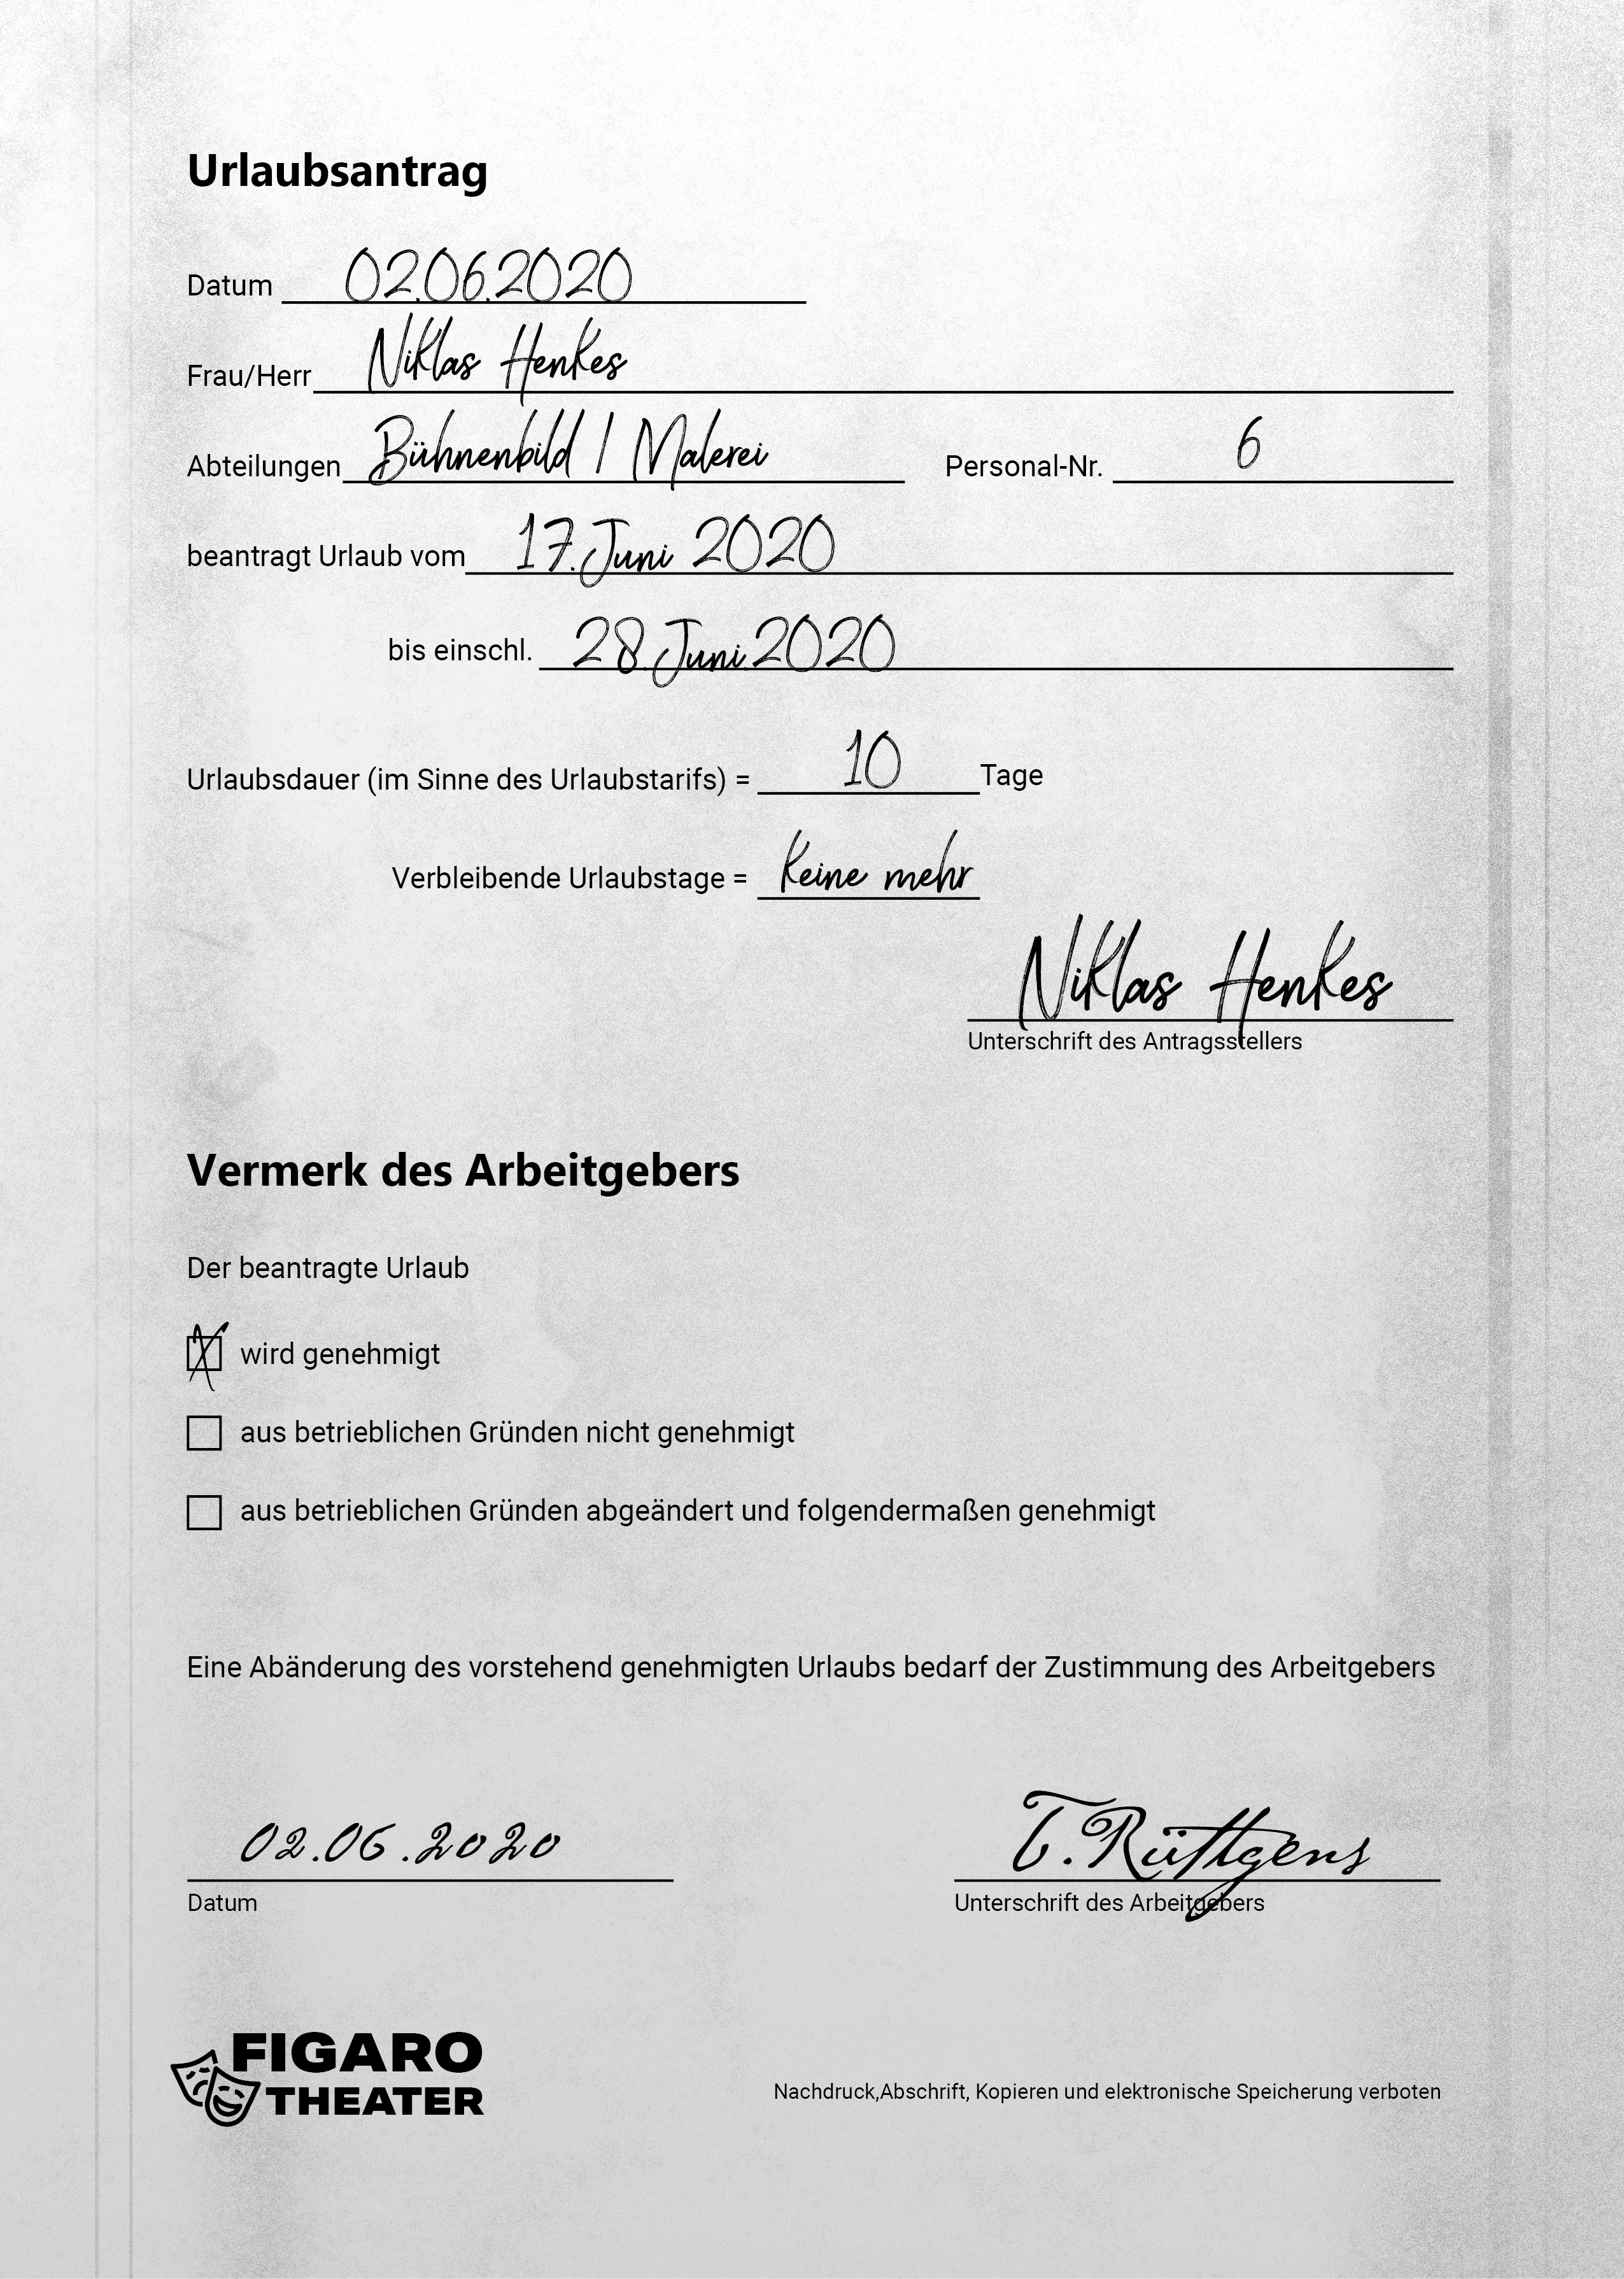 Urlaubsantrag
Datum 02.06.2020
Frau/Herr Niklas Henkes
Abteilungen Bühnenbild / Malerei Personal-Nr. 6
beantragt Urlaub vom 17. Juni 2020
bis einschl. 28. Juni 2020
Urlaubsdauer (im Sinne des Urlaubstarifs) = 10 Tage
Verbleibende Urlaubstage = Keine mehr
Niklas Henkes
Unterschrift des Antragsstellers
Vermerk des Arbeitgebers
Der beantragte Urlaub
X wird genehmigt
aus betrieblichen Gründen nicht genehmigt
aus betrieblichen Gründen abgeändert und folgendermaßen genehmigt
Eine Abänderung des vorstehend genehmigten Urlaubs bedarf der Zustimmung des Arbeitgebers
02.06.2020 T. Rüttgens
Datum Unterschrift des Arbeitgebers
FIGARO
THEATER
Nachdruck,Abschrift, Kopieren und elektronische Speicherung verboten